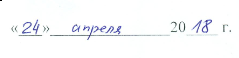 «24» апреля 2018 г.